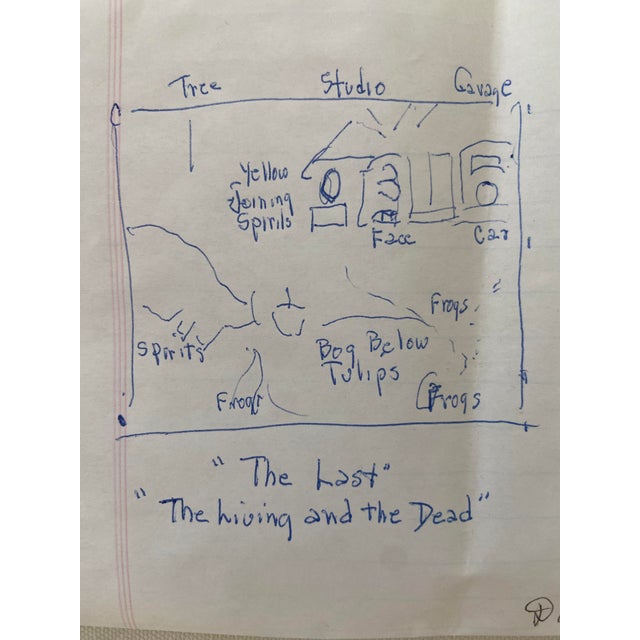 Tree Studio Garage
Yellow
Joining
Spirits
Face Car
Frogs
Spirits
Bog Below
Tulips
Frogs
"The Last"
"The Living and the Dead"